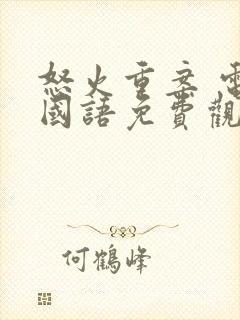 怒火重案 電
國語免費觀
何鶴峰